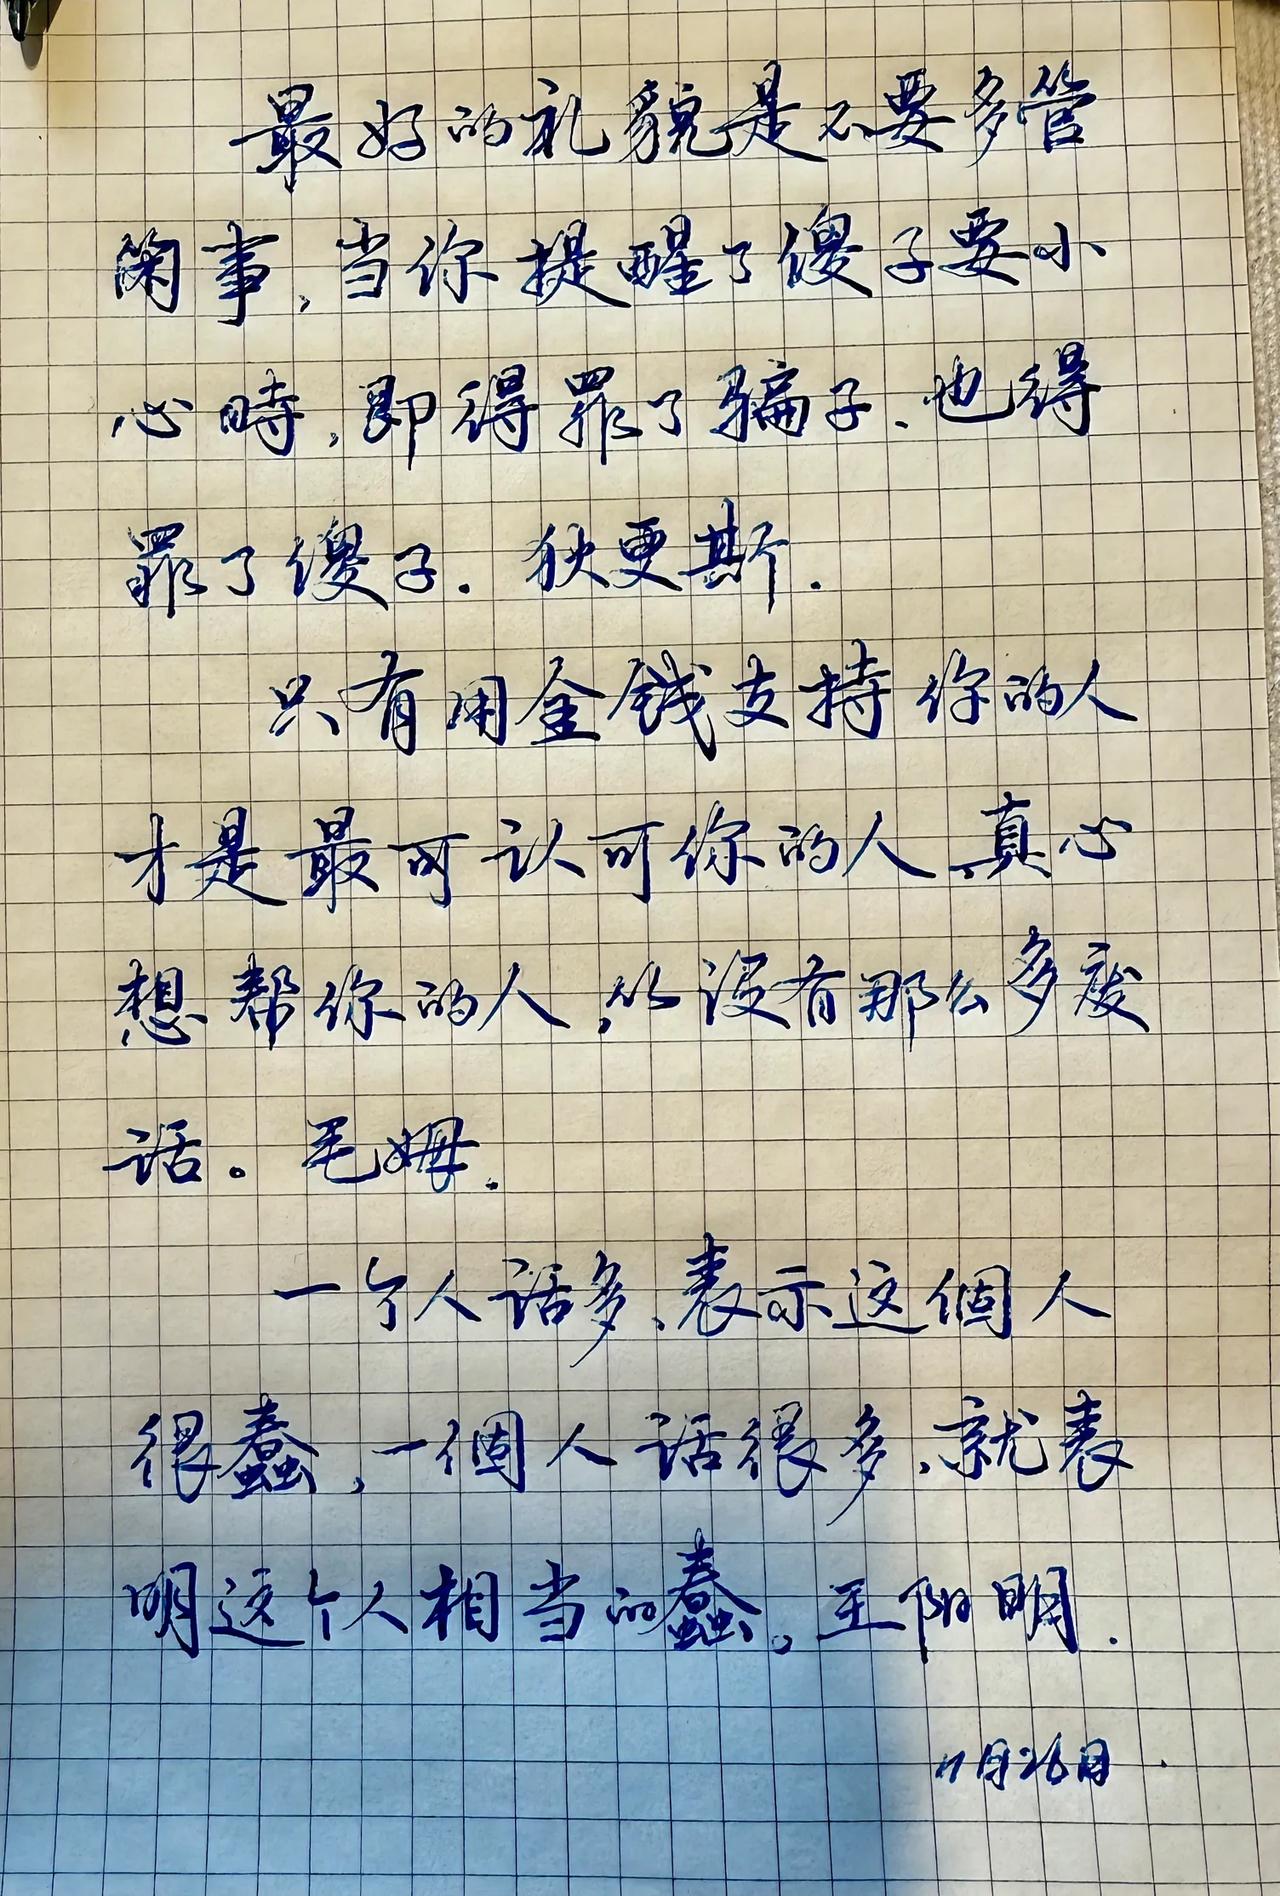 最好的礼貌是不要多管
闲事,当你提醒了傻子要小
心時,即得罪了骗子、也得
罪了傻子.狄更斯.
只有用金钱支持你的人
才是最可认可你的人、真心
想帮你的人,从没有那么多废
话。毛姆.
一个人话多、表示这個人
很蠢,一個人话很多、就表
明这个人相当的蠢。王阳明.
11月26日